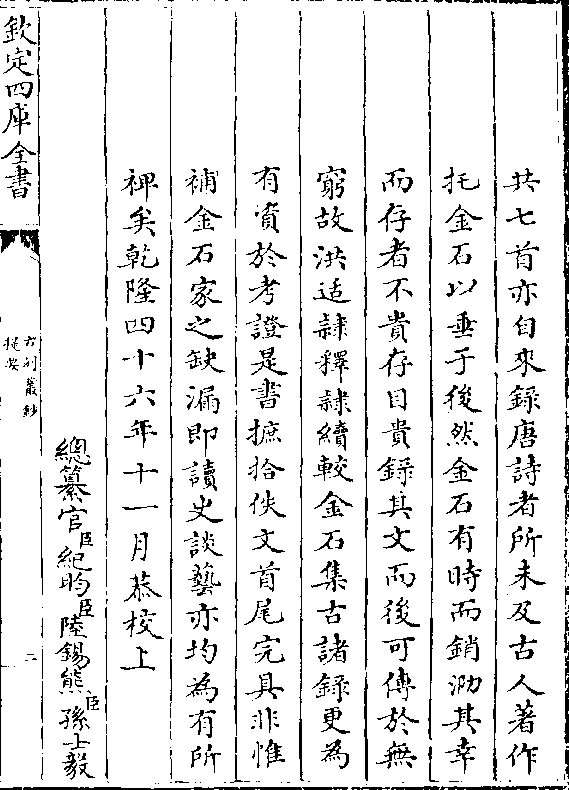 共七首亦自來錄唐詩者所未及古人著作
托金石以垂于後然金石有時而銷泐其幸
而存者不貴存目貴錄其文而後可傳於無
窮故洪适隷釋隷續較金石集古諸錄更為
有資於考證是書摭拾佚文首尾完具非惟
補金石家之缺漏即讀史談藝亦均為有所
裨矣乾隆四十六年十一月恭校上
總纂官臣紀昀臣陸錫熊臣孫士毅
欽定四庫全書
古刻叢鈔
提要
二